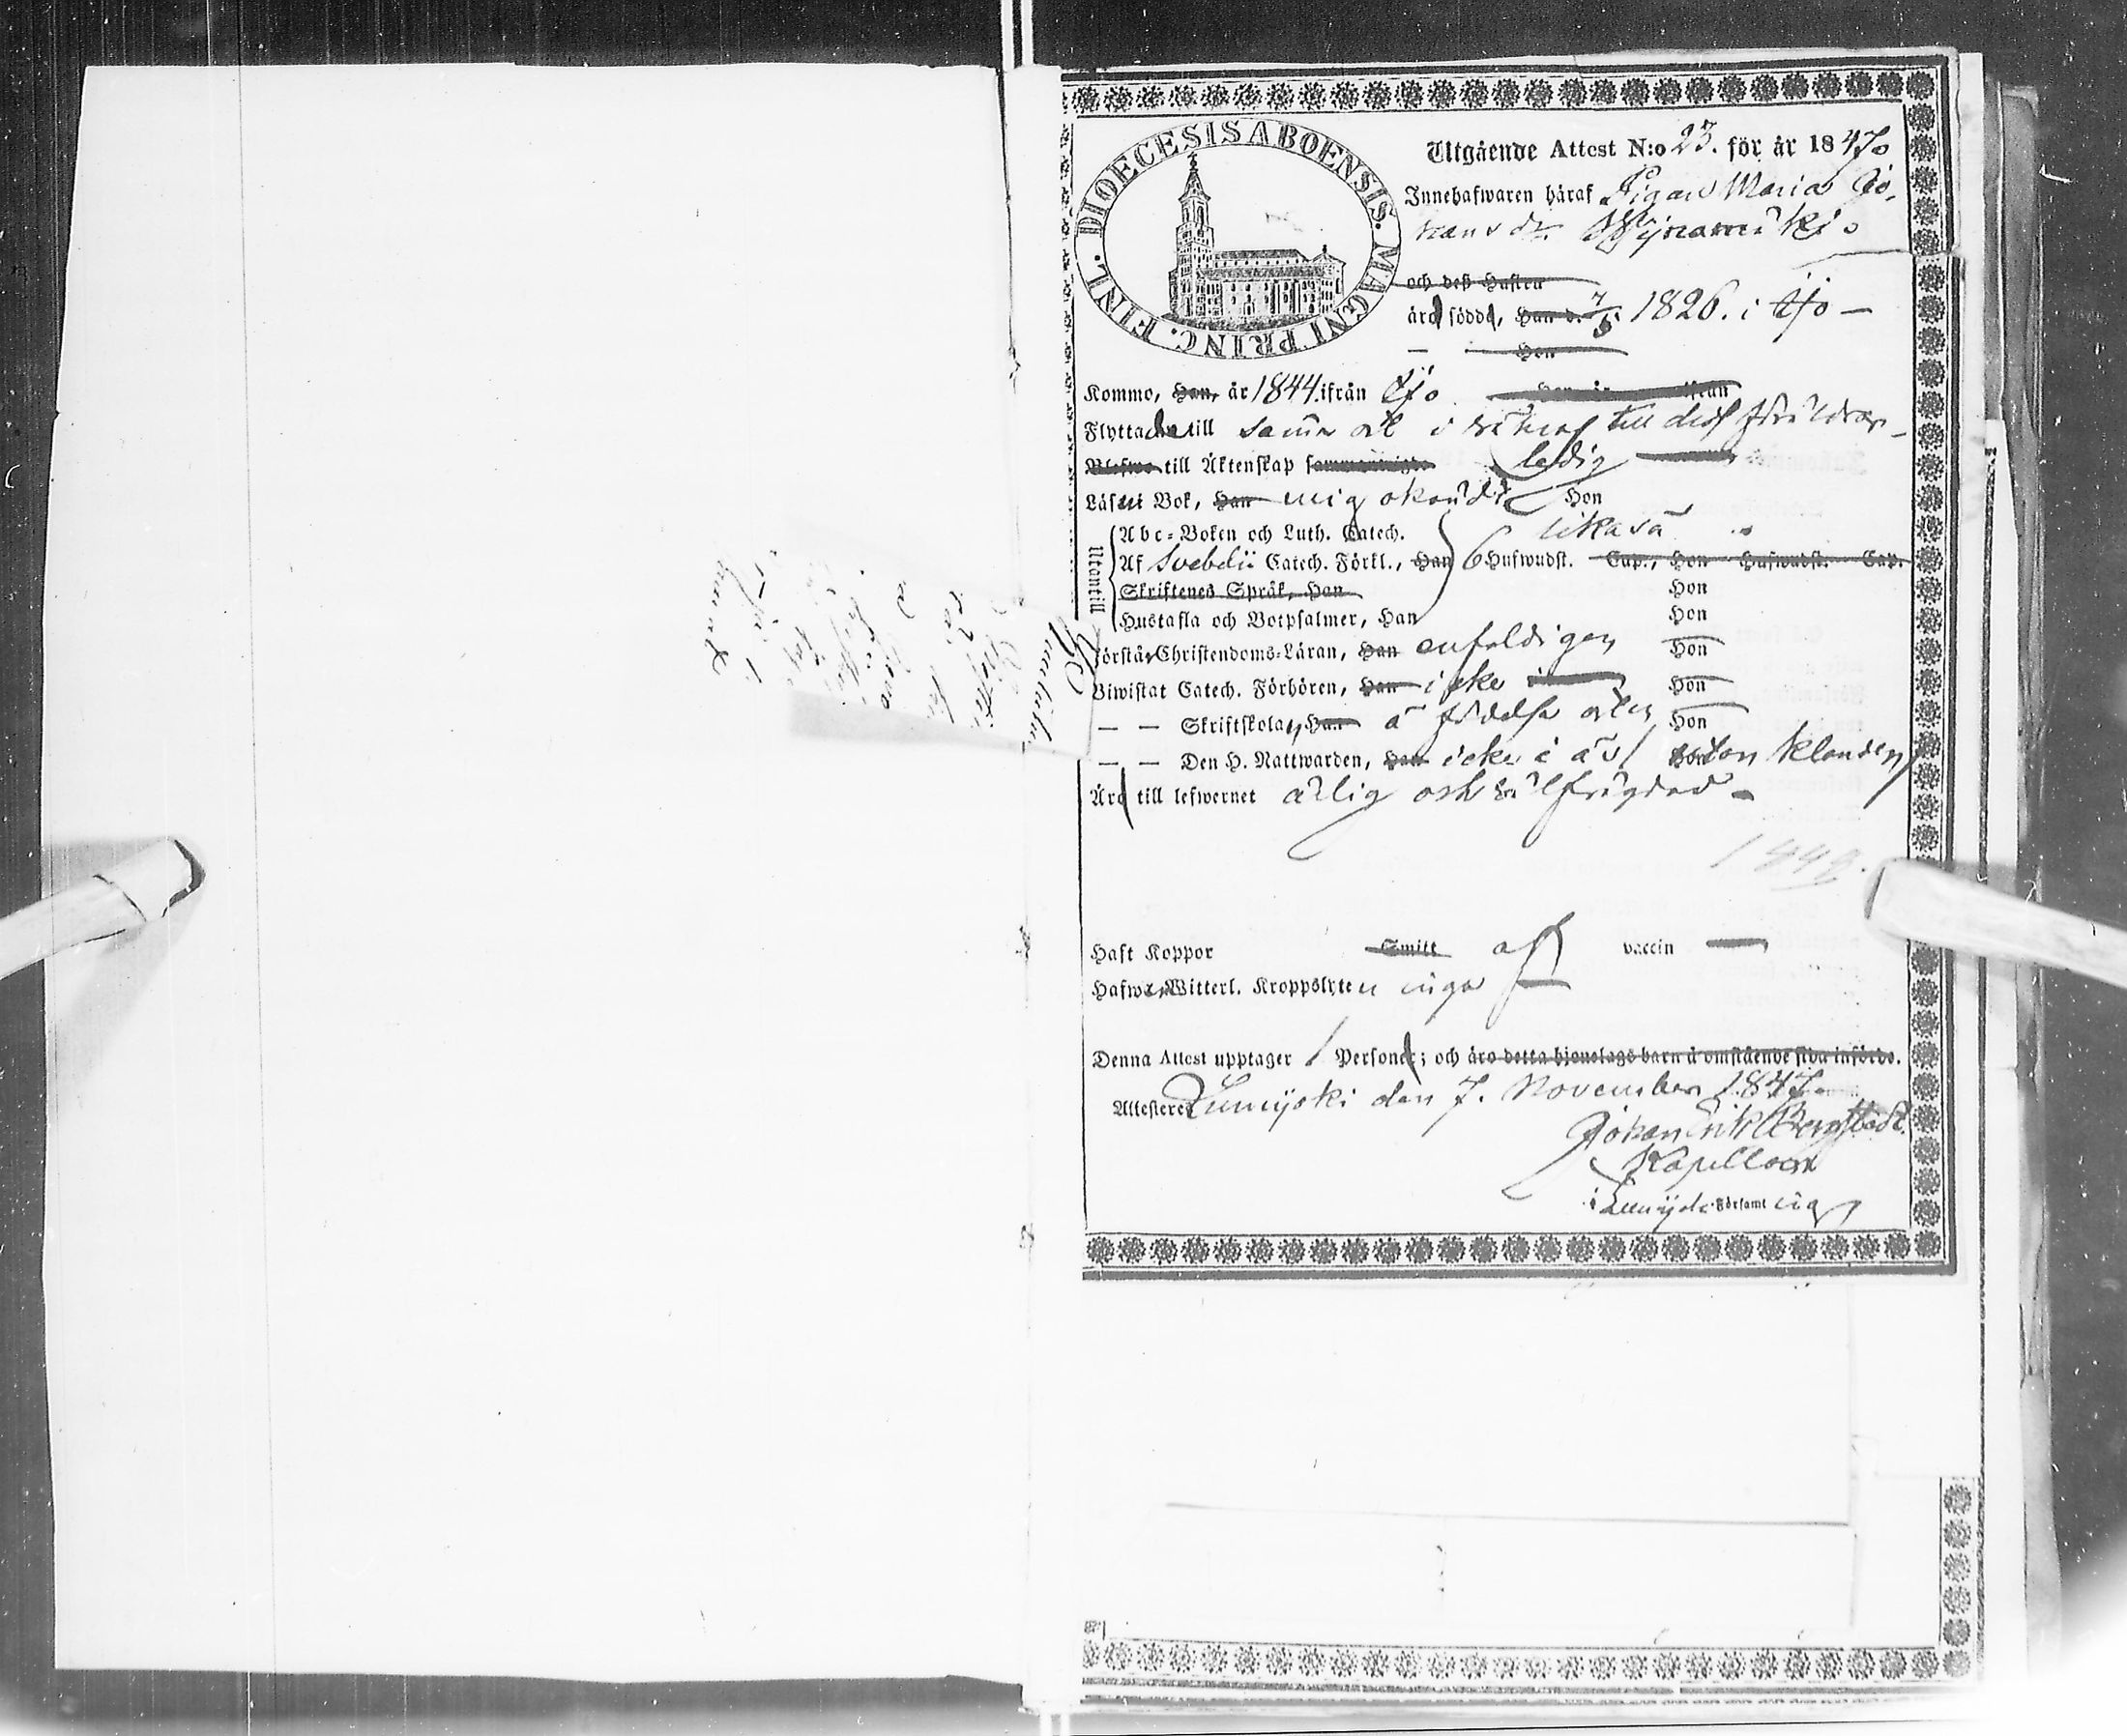 DIOECESIS ABOENSIS. MAGNI PRINC. FINL.
Utgående Attest N:o 23. för år 1847.
Innehafwaren häraf Pigan Maria Jo-
hansdr.
och deß Hustru
äro födde, Han d. 7/5. 1826. i Ijo —
— Hon
Kommo, Han, år 1844. ifrån Ijo
Flyttade till samma ort i till dess föräldrar
Blefwo till Äktenskap sammanwigde ledig
Läsa i Bok, Han mig okändt Hon
Utantill
Abc-Boken och Luth. Catech. likaså
Af Svebelii Catech. Förkl., Han 6 Hufwudst. Cap., Hon Hufwudst. Cap.
Skriftenes Språk, Han Hon
Hustafla och Botpsalmer, Han Hon
Förstår Christendoms-Läran, Han enfaldigen Hon
Biwistat Catech. Förhören, Han icke Hon
— — Skriftskolan, Han å födelse orten Hon
— — Den H. Nattwarden, Han icke i år utan klander
Äro till lefwernet ärlig och välfrägdad —
1848.
Haft Koppor Smitt af vaccin
Hafwa Witterl. Kroppslyten inga
Denna Attest upptager 1 Personer; och äro detta hjonelags barn å omstående sida införde.
Attesterer Lumijoki den 7. November 1847
Johan Erik Bergstedt.
Kapellan
i Lumijoki Församling